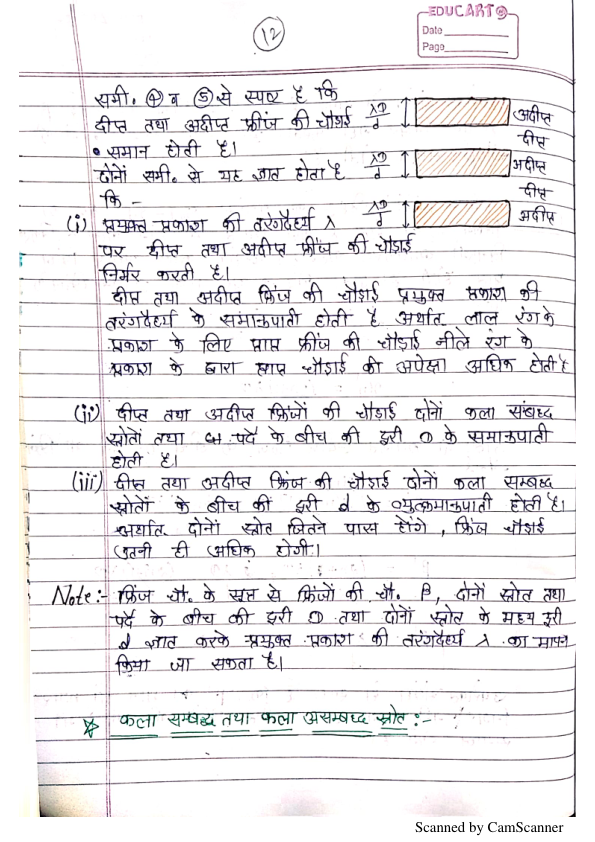 EDUCART
Date
Page
12
समी. ④ व ⑤ से स्पष्ट है कि
दीप्त तथा अदीप्त फ्रींज की चौड़ाई λD/d अदीप्त
दीप्त
• समान होती है।
दोनों समी. से यह ज्ञात होता है λD/d अदीप्त
कि – दीप्त
(i) प्रयुक्त प्रकाश की तरंगदैर्ध्य λ λD/d अदीप्त
पर दीप्त तथा अदीप्त फ्रींज की चौड़ाई
निर्भर करती है।
दीप्त तथा अदीप्त फ्रिंज की चौड़ाई प्रयुक्त प्रकाश की
तरंगदैर्ध्य के समानुपाती होती है अर्थात लाल रंग के
प्रकाश के लिए प्राप्त फ्रींज की चौड़ाई नीले रंग के
प्रकाश के द्वारा प्राप्त चौड़ाई की अपेक्षा अधिक होती है
(ii) दीप्त तथा अदीप्त फ्रिंजों की चौड़ाई दोनों कला संबध्द
स्रोतों तथा पर्दे के बीच की दूरी D के समानुपाती
होती है।
(iii) दीप्त तथा अदीप्त फ्रिंज की चौड़ाई दोनों कला सम्बध्द
स्रोतों के बीच की दूरी d के व्युत्क्रमानुपाती होती है।
अर्थात दोनों स्रोत जितने पास होंगे , फ्रिंज चौड़ाई
उतनी ही अधिक होगी।
Note:- फ्रिंज चौ. के सूत्र से फ्रिंजों की चौ. β, दोनों स्रोत तथा
पर्दे के बीच की दूरी D तथा दोनों स्रोत के मध्य दूरी
d ज्ञात करके प्रयुक्त प्रकाश की तरंगदैर्ध्य λ का मापन
किया जा सकता है।
☆ कला सम्बध्द तथा कला असम्बध्द स्रोत :-
Scanned by CamScanner